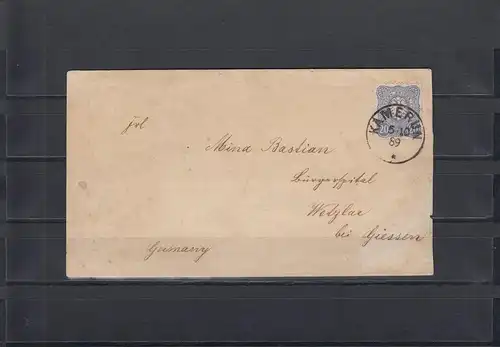 KAMERUN
20 5 10
89
*
Frl
Mina Bastian
Bürgerspital
Wetzlar
bei Giessen
Germany